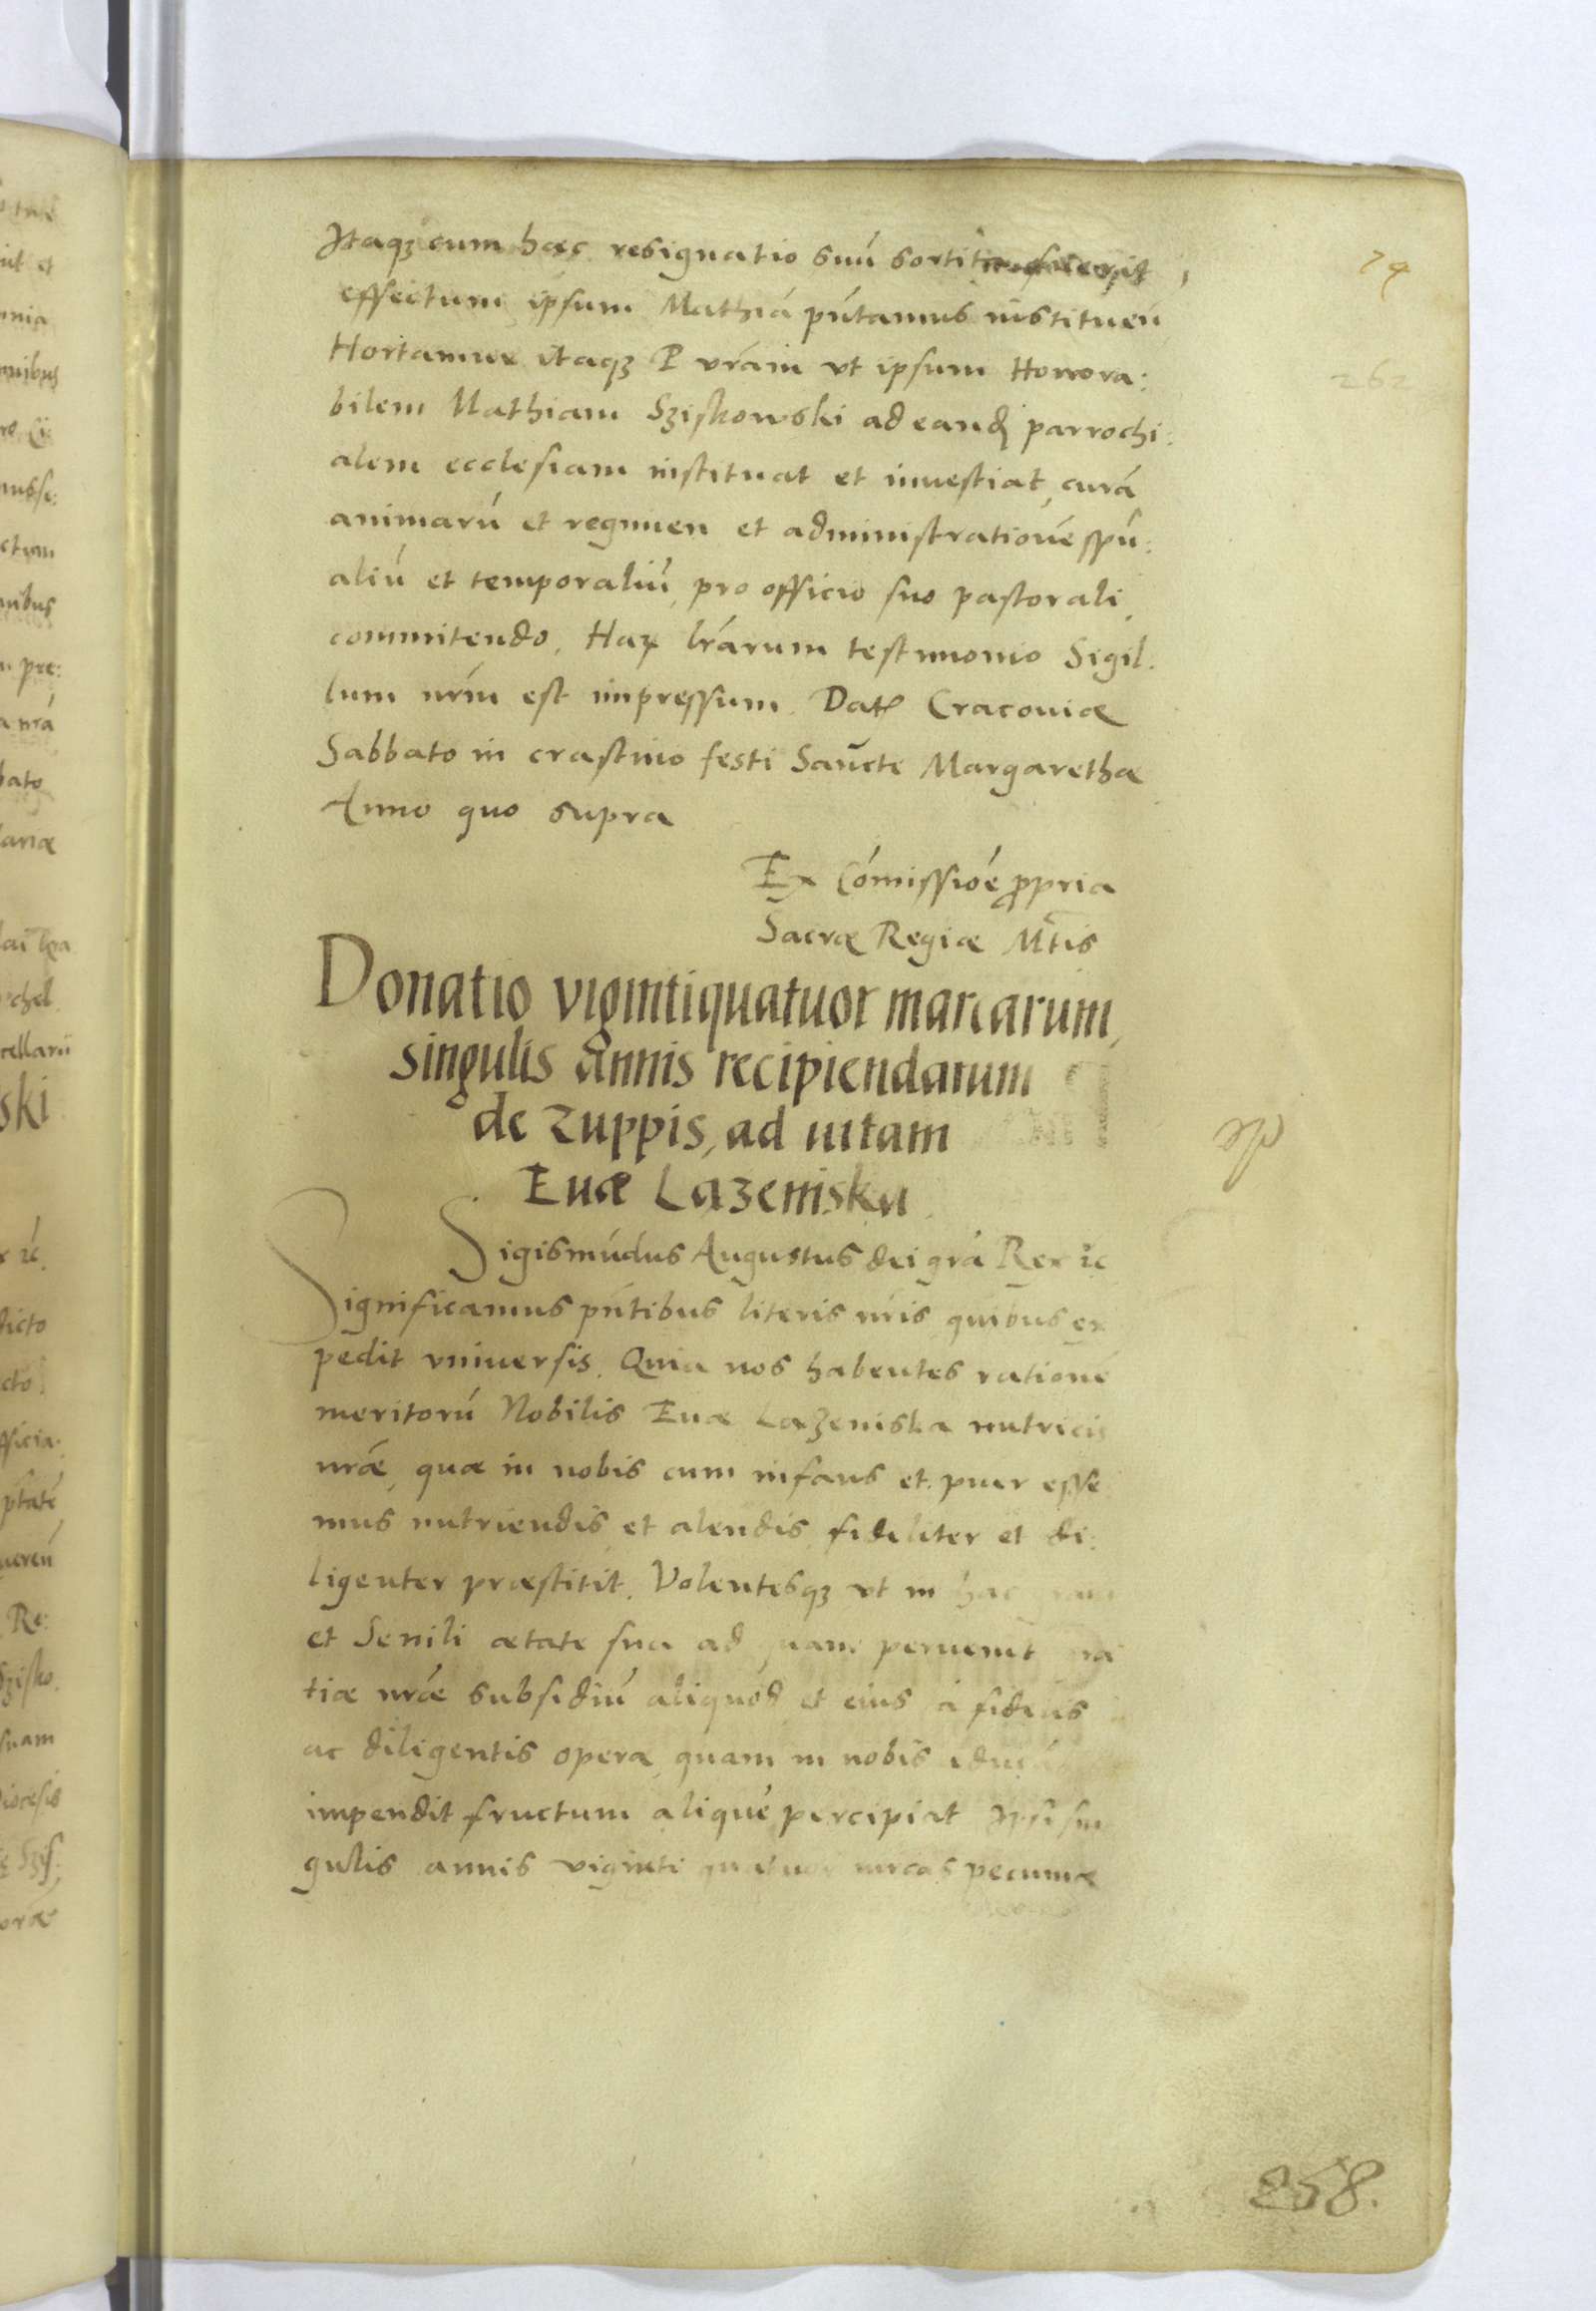 Itaqz cum haec resignatio suú sortita fuerit
effectum ipsum Mathiá pńtamus instituen̄
Hortamur itaqz P vram ut ipsum Honora:
bilem Mathiam Sziskowski ad eand parrochi:
alem ecclesiam instituat et inuestiat, curá
animarú et regimen et administrationé spū:
aliú et temporaliú, pro officio suo pastorali,
commitendo. Haz lrárum testimonio Sigil:
lum nrm est impressum. Dat Cracouiæ
Sabbato in crastino festi Sancte Margarethæ
Anno quo supra
Ex Cómissióe propria
Sacræ Regiæ Mtis
Donatio vigintiquatuor marcarum,
singulis annis recipiendarum
de zuppis, ad uitam
Euæ Lazeniska
Sigismúdus Augustus dei grá Rex ꝛc
Significamus pńtibus literis nris quibus ex
pedit vniuersis. Quia nos habentes rationé
meritorú Nobilis Euæ Lazeniska nutricis
nræ, quæ in nobis cum infans et puer esse
mus nutriendis et alendis fideliter et di:
ligenter præstitit. Volentesqz ut in hac
et Senili ætate sua ad quam peruenit
tiæ nræ subsidiú aliquod et eius a fidelis
ac diligentis opera, quam in nobis
impendit fructum aliqué percipiat Ipsi sin
gulis annis viginti quatuor mrcas pecuniæ
79
262
258.